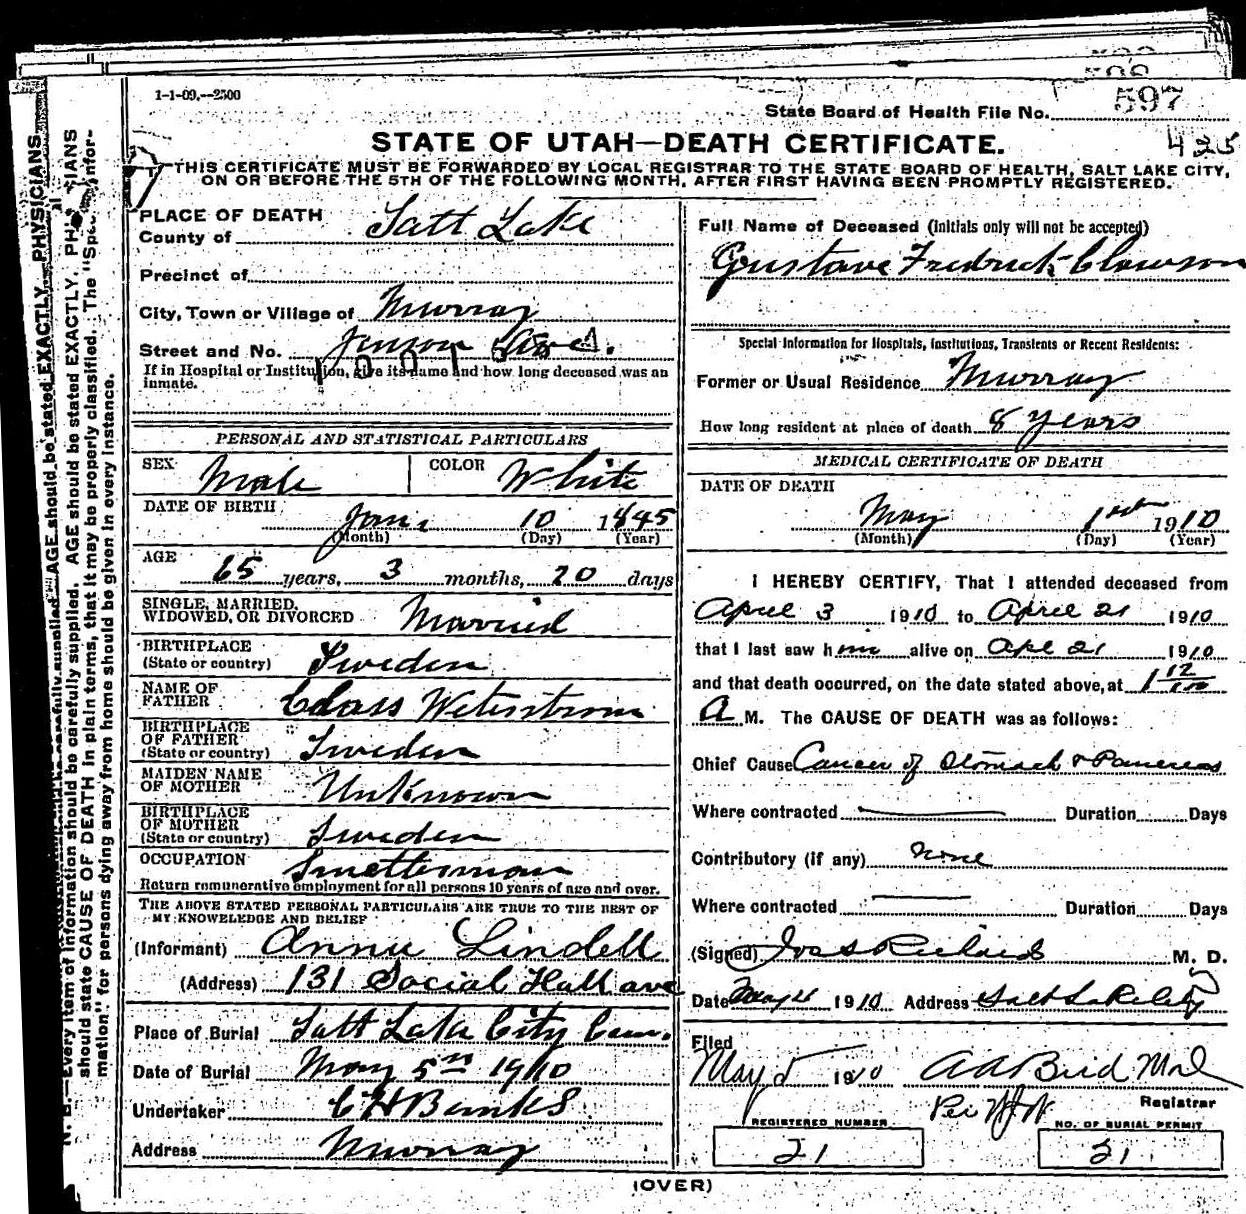 1-1-09.--2500
State Board of Health File No. 597
425
STATE OF UTAH—DEATH CERTIFICATE.
THIS CERTIFICATE MUST BE FORWARDED BY LOCAL REGISTRAR TO THE STATE BOARD OF HEALTH, SALT LAKE CITY,
ON OR BEFORE THE 5TH OF THE FOLLOWING MONTH, AFTER FIRST HAVING BEEN PROMPTLY REGISTERED.
PLACE OF DEATH
County of Salt Lake
Precinct of
City, Town or Village of Murray
Street and No. Jenson Ave.
If in Hospital or Institution, give its name and how long deceased was an
inmate.
PERSONAL AND STATISTICAL PARTICULARS
SEX Male COLOR White
DATE OF BIRTH
Jan. 10 1845
(Month) (Day) (Year)
AGE
65 years, 3 months, 20 days
SINGLE, MARRIED,
WIDOWED, OR DIVORCED Married
BIRTHPLACE
(State or country) Sweden
NAME OF
FATHER Class Weterstrom
BIRTHPLACE
OF FATHER
(State or country) Sweden
MAIDEN NAME
OF MOTHER Unknown
BIRTHPLACE
OF MOTHER
(State or country) Sweden
OCCUPATION Smelterman
Return remunerative employment for all persons 10 years of age and over.
THE ABOVE STATED PERSONAL PARTICULARS ARE TRUE TO THE BEST OF
MY KNOWELEDGE AND BELIEF
(Informant) Annie Lindell
(Address) 131 Social Hall ave
Place of Burial Salt Lake City Cem.
Date of Burial May 5th 1910
Undertaker C H Banks
Address Murray
Full Name of Deceased (initials only will not be accepted)
Gustave Fredrick Clawson
Special Information for Hospitals, Institutions, Transients or Recent Residents:
Former or Usual Residence Murray
How long resident at place of death 8 years
MEDICAL CERTIFICATE OF DEATH
DATE OF DEATH
May 1st 1910
(Month) (Day) (Year)
I HEREBY CERTIFY, That I attended deceased from
April 3 1910 to April 21 1910
that I last saw him alive on Apl 21 1910
and that death occurred, on the date stated above, at 1 12
A M. The CAUSE OF DEATH was as follows:
Chief Cause Cancer of Stomach & Pancreas
Where contracted Duration Days
Contributory (if any) none
Where contracted Duration Days
(Signed) Jos S Richards M. D.
Date May 4 1910 Address Salt Lake City
Filed
May 5 1910 A A Bird M d
Per H W Registrar
REGISTERED NUMBER NO. OF BURIAL PERMIT
21 21
(OVER)
N. B.—Every item of information should be carefully supplied. AGE should be stated EXACTLY. PHYSICIANS
should state CAUSE OF DEATH in plain terms, that it may be properly classified. The "Special Infor-
mation" for persons dying away from home should be given in every instance.